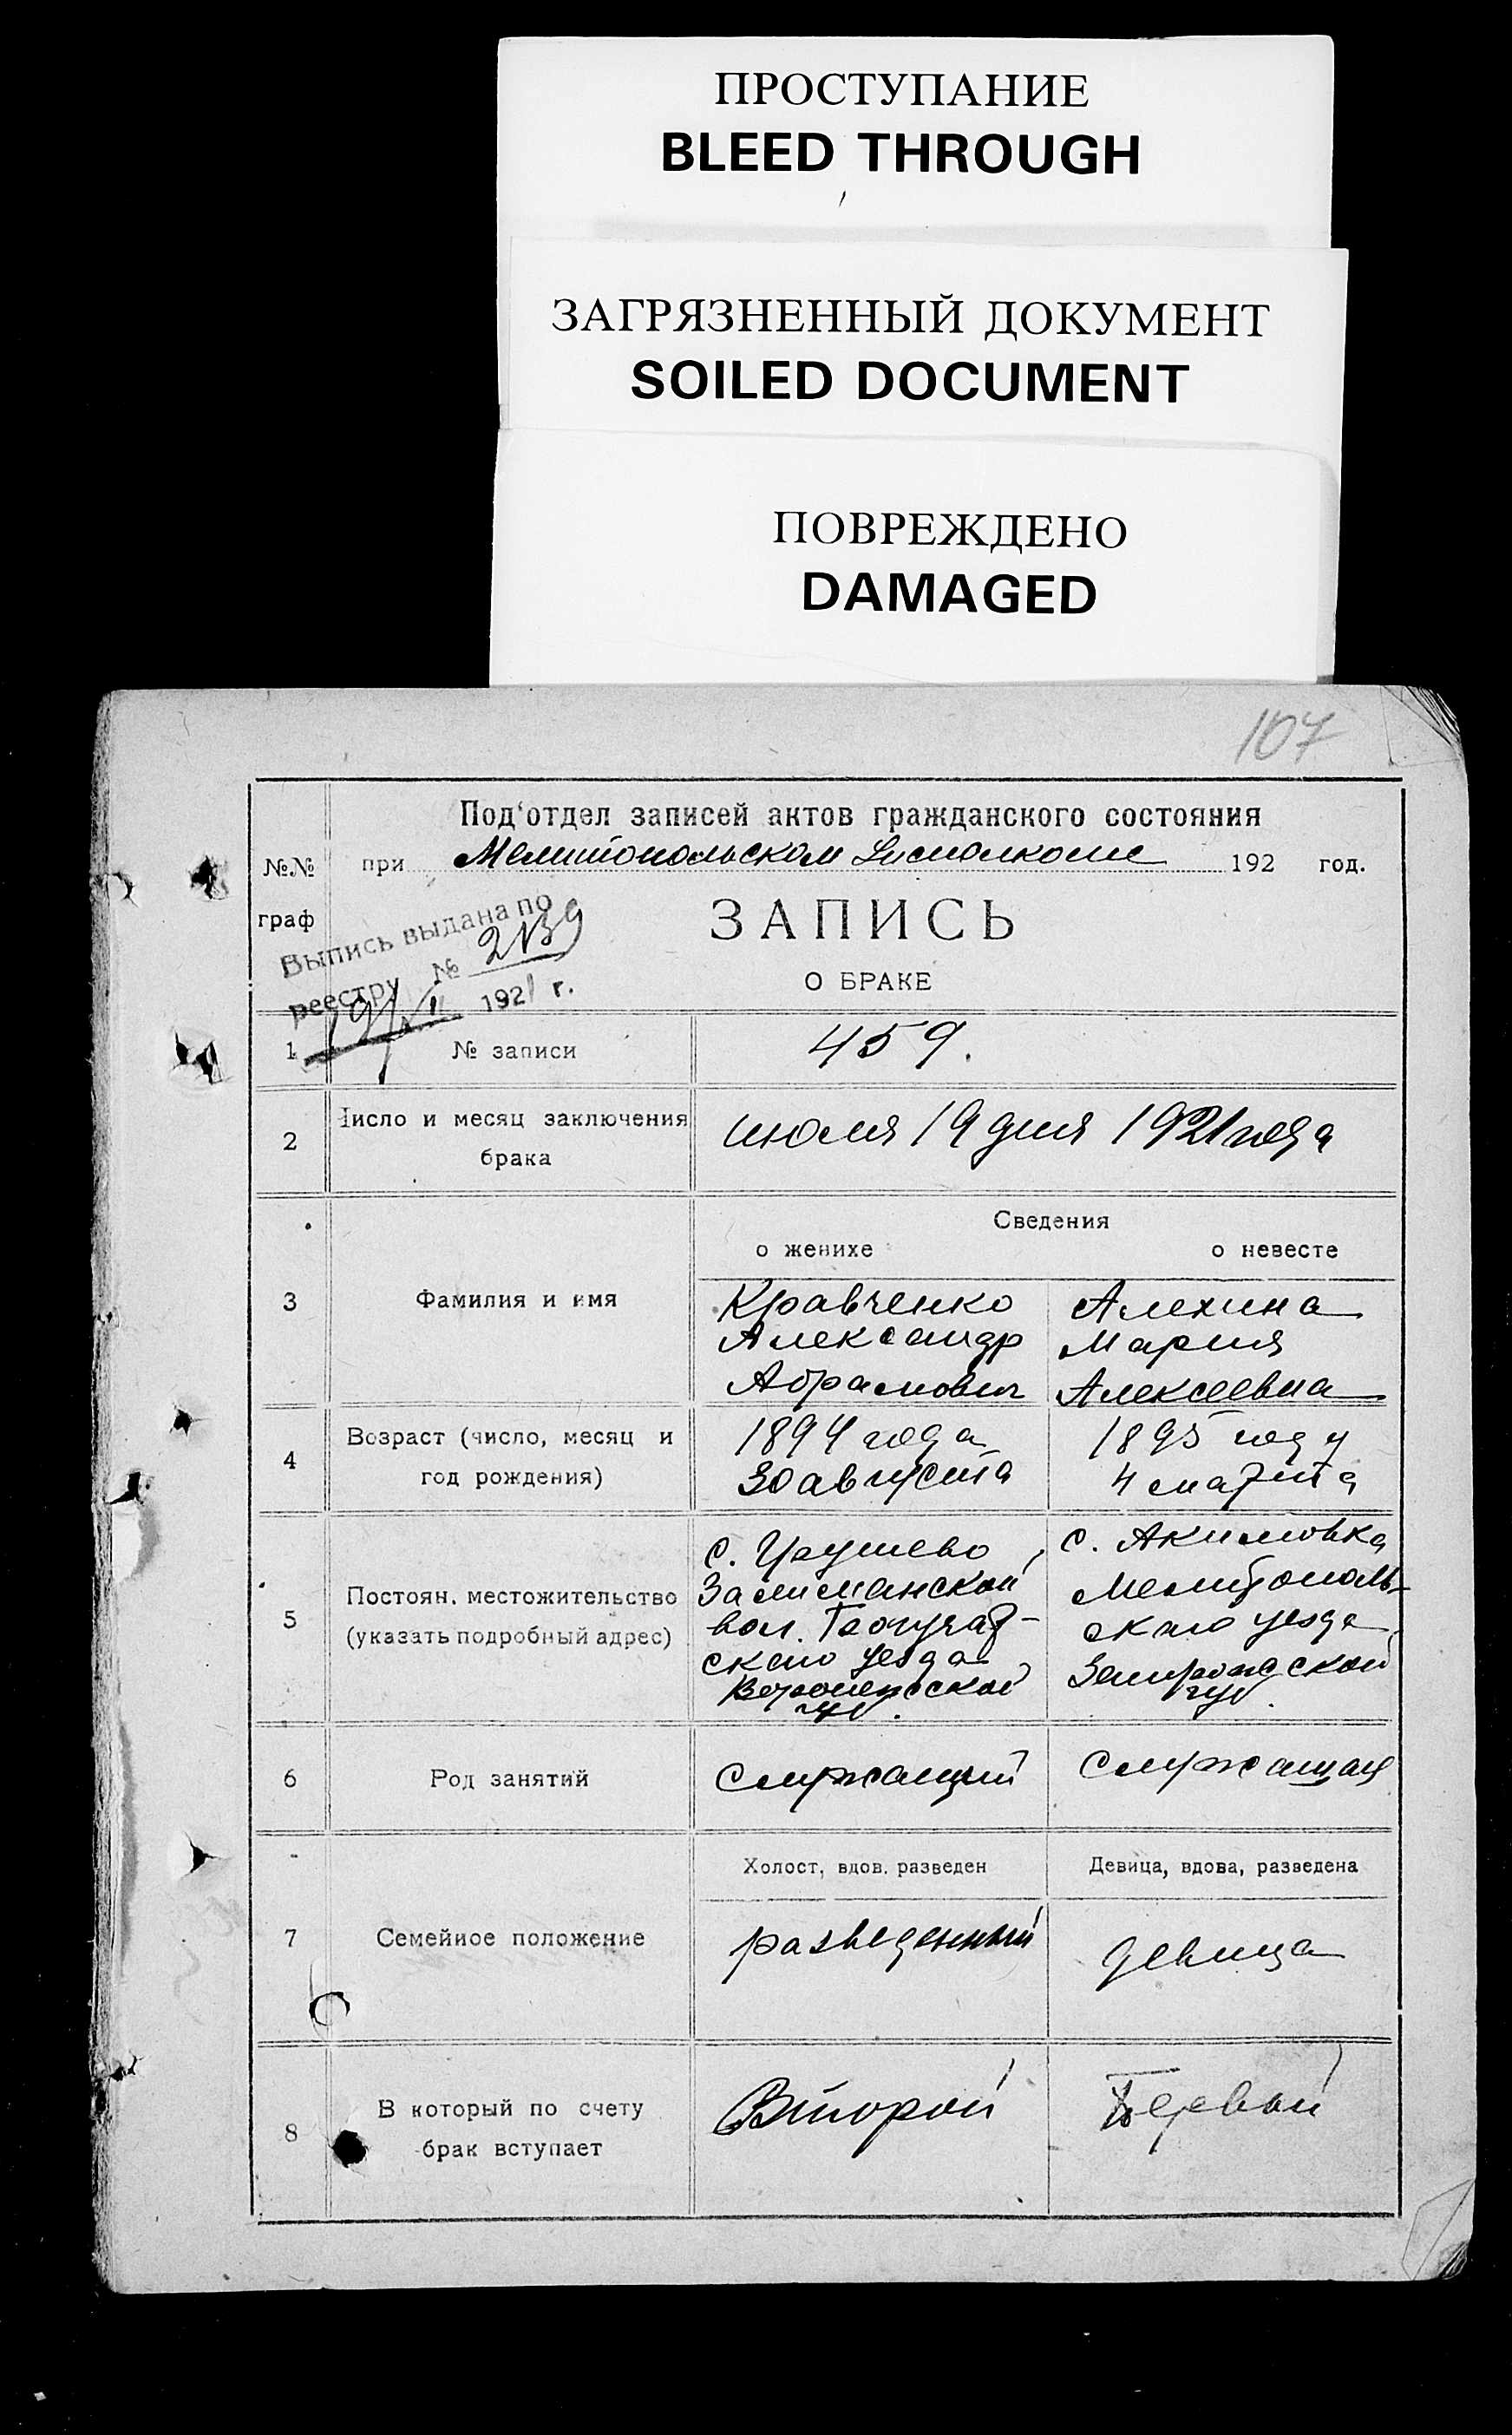 ПРОСТУПАНИЕ
BLEED THROUGH
ЗАГРЯЗНЕННЫЙ ДОКУМЕНТ
SOILED DOCUMENT
ПОВРЕЖДЕНО
DAMAGED
107
Под'отдел записей актов гражданского состояния
№№ граф
при Мелитопольском Исполкоме 192 год.
Выпись выдана по
реестру № 2139
19/VII 1921 г.
ЗАПИСЬ
О БРАКЕ
1 № записи 459.
2 Число и месяц заключения брака
июля 19 дня 1921 года
Сведения
о женихе о невесте
3 Фамилия и имя
Кравченко
Александр
Абрамович
Алехина
Мария
Алексеевна
4 Возраст (число, месяц и год рождения)
1894 года
30 августа
1895 году
4 марта
5 Постоян. местожительство (указать подробный адрес)
с.
Залиманской
вол. Богучар-
скаго уезда
Воронежской
губ.
с. Акимовка
Мелитополь-
скаго уезда
Запорожской
губ.
6 Род занятий
Служащий
Служащая
Холост, вдов. разведен
Девица, вдова, разведена
7 Семейное положение
разведенный
девица
8 В который по счету
брак вступает
Второй
Первый